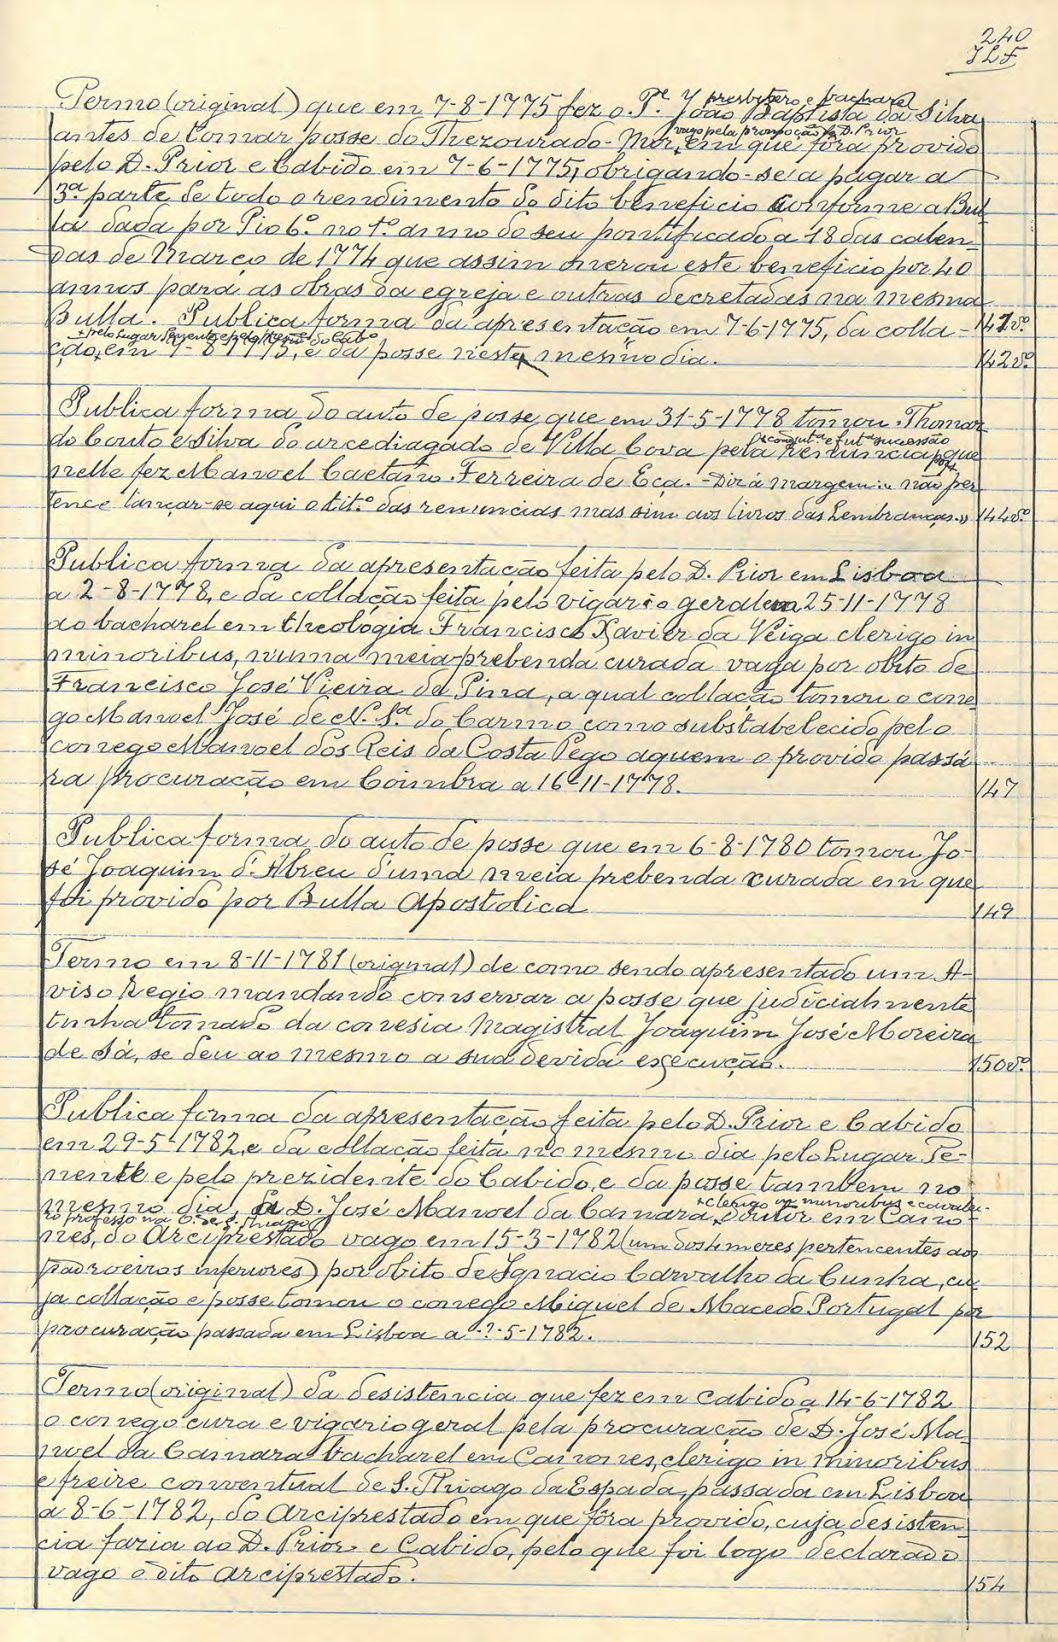 240
JLF
presbytero e bacharel
Termo (original) que em 7-8-1775 fez o P.e João Baptista da Silva
antes de tomar posse do Thezourado-Mór, em que fôra provido
vago pela promoção do D. Prior
pelo D. Prior e Cabido em 7-6-1775, obrigando-se a pagar a
3ª parte de todo o rendimento do dito beneficio conforme a Bul-
la dada por Pio 6.º no 1.º anno do seu pontificado a 18 das calen-
das de Março de 1774 que assim onerou este beneficio por 40
annos para as obras da egreja e outras decretadas na mesma
Bulla. Publica fórma da apresentação em 7-6-1775, da colla- 141vº
+ pelo Lugar Tenente e pelo Presid. do Cabº
ção, em 7-8-1775, e da posse neste mesmo dia. 142vº
Publica forma do auto de posse que em 31-5-1778 tomou Thomaz
do Couto e Silva do arcediagado de Villa Cova pela renuncia que
+ coadjut.ª e fut.ª successão
nelle fez Manoel Caetano Ferreira de Eça. - Diz á margem: "não per
tence lançar-se aqui o tit.º das renuncias mas sim aos livros das Lembranças." 144vº
Publica forma da apresentação feita pelo D. Prior em Lisboa
a 2-8-1778, e da collação feita pelo vigario geral em 25-11-1778
ao bacharel em theologia Francisco Xavier da Veiga clerigo in
minoribus, numa meia prebenda curada vaga por obito de
Francisco José Vieira de Pina, a qual collação tomou o cone-
go Manoel José de N. Sª do Carmo como substabelecido pelo
conego Manoel dos Reis da Costa Pego aquem o provido passá-
ra procuração em Coimbra a 16-11-1778. 147
Publica forma do auto de posse que em 6-8-1780 tomou Jo-
sé Joaquim d'Abreu d'uma meia prebenda curada em que
foi provido por Bulla Apostolica 149
Termo em 8-11-1781 (original) de como sendo apresentado um A-
viso Regio mandando conservar a posse que judicialmente
tinha tomado da conesia Magistral Joaquim José Moreira
de Sá, se deu ao mesmo a sua devida execução. 150vº
Publica forma da apresentação feita pelo D. Prior e Cabido
em 29-5-1782, e da collação feita no mesmo dia pelo Lugar Te-
nente e pelo prezidente do Cabido, e da posse tambem no
mesmo dia, a D. José Manoel da Camara, Doutor em Cano-
+ clerigo in minoribus e cavalei-
ro professo na O. de S. Thiago
nes, do Arciprestado vago em 15-3-1782 (um dos 4 mezes pertencentes aos
padroeiros inferiores) por obito de Ignacio Carvalho da Cunha, cu-
ja collação e posse tomou o conego Miguel de Macedo Portugal por
procuração passada em Lisboa a -?-5-1782. 152
Termo (original) da desistencia que fez em Cabido a 14-6-1782
o conego cura e vigario geral pela procuração de D. José Ma-
noel da Camara bacharel em Canones, clerigo in minoribus
e freire conventual de S. Thiago da Espada, passada em Lisboa
a 8-6-1782, do Arciprestado em que fôra provido, cuja desisten-
cia faria ao D. Prior e Cabido, pelo que foi logo declarado
vago o dito arciprestado. 154